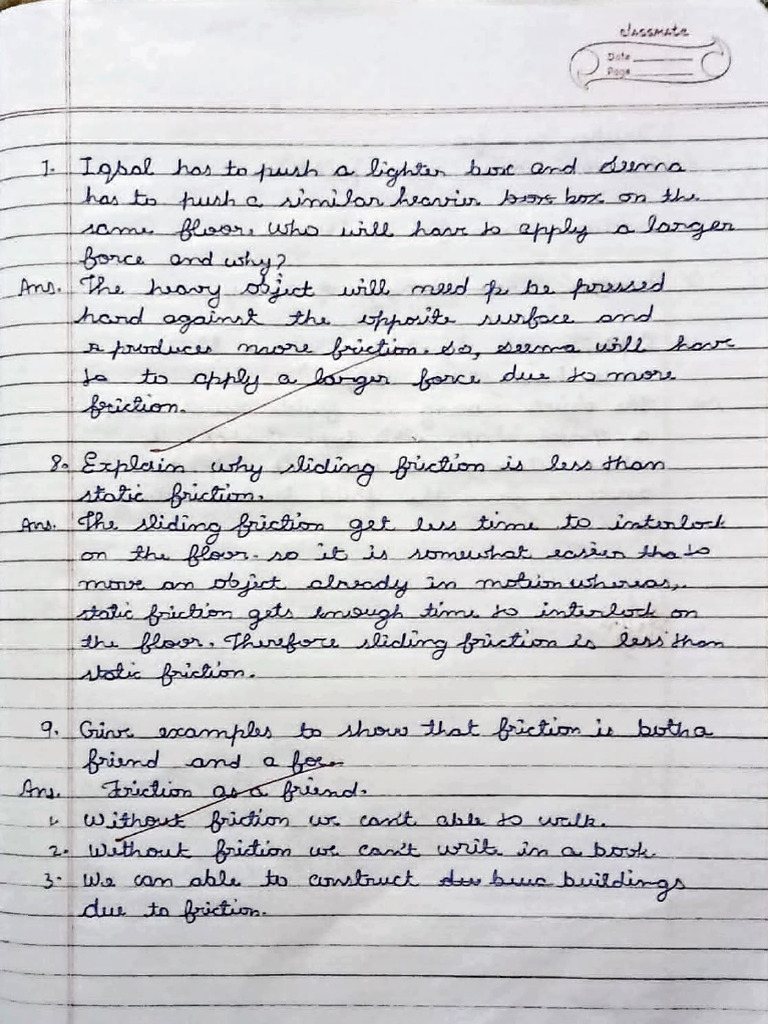 classmate
Date
Page
7. Iqbal has to push a lighter box and Seema
has to push a similar heavier box box on the
same floor. Who will have to apply a larger
force and why?
Ans. The heavy object will need to be pressed
hard against the opposite surface and
produces more friction. So, Seema will have
to to apply a larger force due to more
friction.
8. Explain why sliding friction is less than
static friction.
Ans. The sliding friction get less time to interlock
on the floor. so it is somewhat easier to
move an object already in motion whereas,
static friction gets enough time to interlock on
the floor. Therefore sliding friction is less than
static friction.
9. Give examples to show that friction is both a
friend and a foe.
Ans. Friction as a friend.
1. Without friction we can't able to walk.
2. Without friction we can't write in a book.
3. We can able to construct buildings
due to friction.